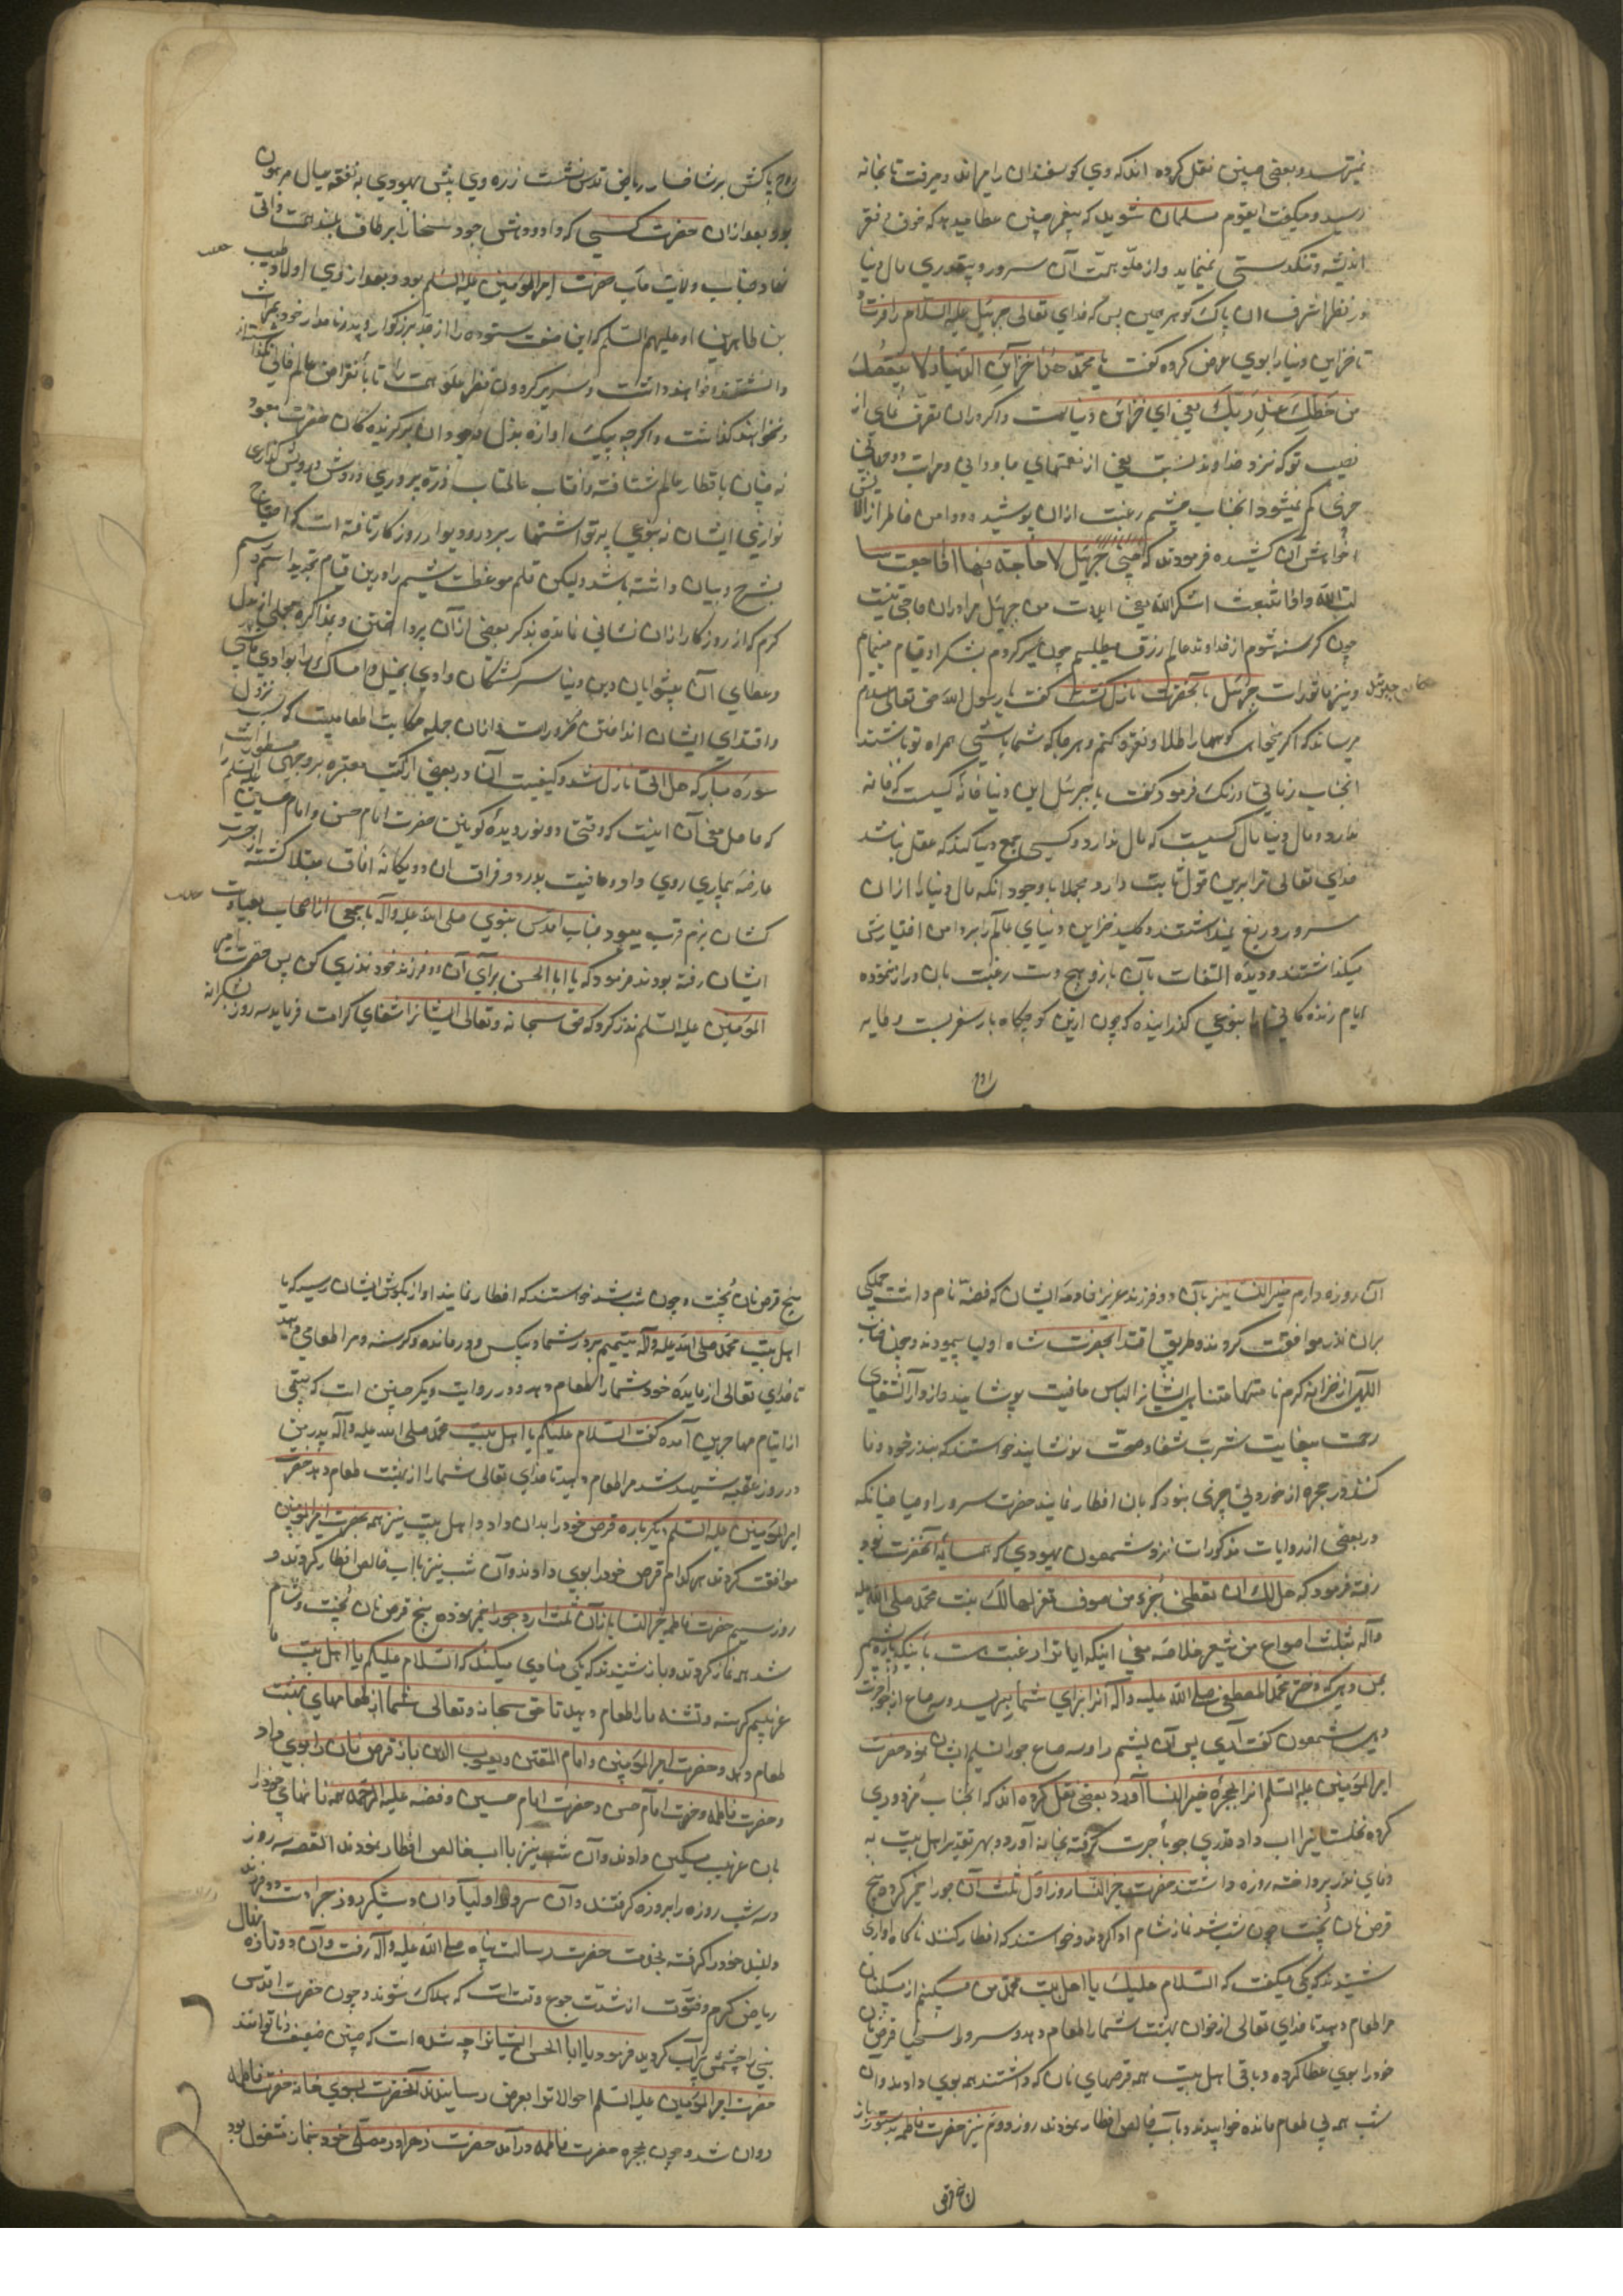 نمیترسد و بعضی چنین نقل کرده اند که وی کوسفندان را میراند و میرفت تا بخانه
رسید و میکفت ایقوم مسلمان شوید که پیغمبر چنین عطا میدهد که خوف فقر
اندیشه و تنکدستی نمینماید و از علو همت آن سرور و بیقدری مال دنیا
در نظر اشرف ان پاک کوهر همین بس که خدای تعالی جبرئیل علیه السلام را فرستاد
تا خزاین دنیا را بوی عرض کرده گفت یا محمد هذه خزائن الدنیا و لا ینقصک
من حظک عند ربک یعنی ای خزائن دنیاست و اکر در ان تصرف نمای از
نصیب تو که نزد خداوند تست یعنی از نعمتهای جاودانی و مراتب دوجهانی
چیزی کم نمیشود انجناب چشم رغبت ازان پوشیده و دامن خاطر از الایش
خواهش آن کشیده فرمودند که حبیبی جبرئیل لا حاجة فیها اذا جعت سا
لت الله و اذا شبعت اشکر الله یعنی ایدوست من جبرئیل مرا دران حاجتی نیست
چون کرسنه شوم از خداوند عالم رزق میطلبم چون سیر کردم بشکر او قیام مینمایم
و نیز ماثور است جبرئیل بانحضرت نازل کشت گفت یا رسول الله حق تعالی سلام
میرساند که اکر میخواهی کوهها را طلا و نقره کنم و هر جا که شما باشی همراه تو باشند
انجناب زمانی درنک فرمود کفت یا جبرئیل این دنیا خانه کسیست که خانه
ندارد و مال دنیا مال کسیست که مال ندارد و کسی جمع دنیا کند که عقل نباشد
خدای تعالی ترا برین قول ثابت دارد مجملا با وجود آنکه مال دنیا را ازان
سرور دریغ نمیداشتند و کلید خزاین دنیای عالم را بر دامن اختیارش
میکذاشتند و دیده التفات بآن باز و هیچ دست رغبت بان دراز ننموده
ایام زنده کانی را بنوعی کذرانیده که چون ازین کوچکاه بار سفر بست و طایر
روح پاکش بر شاخسار ریاض قدس نشست زره وی پیش یهودی به نفقه عیال مرهون
بود و بعد ازان حضرت کسی که داد و دهش جود و سخا را بر طاق بلند همت ذاتی
نهاد جناب ولایت مآب حضرت امیر المومنین علیه السلم بود و بعد از وی اولاد طیب
بن طاهرین او علیهم السلم که این صفت ستوده را از جد بزرکوار و پدر نامدار خود بمیراث
و نخواهند کذاشت و اکرچه پیک اوازه بذل و جود ان برکزیده کان حضرت معبود
نه چنان باقطار عالم شتافته و افتاب عالمتاب ذره پروری و درویش
نوازی ایشان نه بنوعی پرتو اشتهار بر در و دیوار روزکار تافته است که احتیاج
بشرح و بیان داشته باشد و لیکن قلم موعظت شیم را درین مقام تجدید اسم و رسم
کرم که از روزکار ازان نشانی نمانده بذکر بعضی ازان پرداختن و بمذاکره مجملی از بذل
و عطای آن پیشوایان دین و دنیا سرکشتکان وادی بخل و امساک را بوادی
و اقتدای ایشان انداختن ضرور است ازان جمله حکایت اطعامیست که سبب نزول
سوره مبارکه هل اتی نازل شد و کیفیت آن در بعضی از کتب معتبره بر وجهی مسطور است
که حاصل معنی آن اینست که وقتی دو نور دیده کونین حضرت امام حسن و امام حسین علیه السلم را
عارضه بیماری روی داد و عافیت بدرد فراق ان دو یکانه آفاق مبتلا کشته
کشان بزم قرب معبود جناب اقدس نبوی صلی الله علیه و آله با جمعی از اصحاب بعیادت
ایشان رفته بودند فرمود که یا ابا الحسن برای آن دو فرزند خود نذری کن پس حضرت امیر
المومنین علیه السلم نذر کرد که حق سبحانه و تعالی ایشانرا شفای کرامت فرماید سه روز شکرانه
آن روزه دارم خیر النسا نیز بآن دو فرزند عزیز و خادمه ایشان که فضه نام داشت همکی
بران نذر موافقت کردند و طریق اقتدا بحضرت شاه اولیا پیمودند و چون جناب
اللهی از خزانه کرم نامتناهی ایشانرا لباس عافیت پوشانید و از دار الشفای
رحمت بیغایت شربت شفا و صحت نوشانید خواستند که بنذر خود وفا
کنند در حجره از خوردنی چیزی نبود که بان افطار نمایند حضرت سرور اوصیا چنانکه
در بعضی از روایات مذکور است نزد شمعون یهودی که همسایه آنحضرت بود
رفته فرمود که هل لک ان تعطینی جزة من صوف تغزلها لک بنت محمد صلی الله علیه
و آله بثلث اصواع من شعیر خلاصه معنی اینکه ایا ترا رغبت هست باینکه پاره پشم
بمن دهی که دختر محمد المصطفی صلی الله علیه و آله انرا برای شما بریسد و سه صاع از جو
دهی شمعون گفت آری پس آن پشم را و سه صاع جو را تسلیم ایشان نمود حضرت
امیر المومنین علیه السلم انرا بحجره خیر النسا آورد و بعضی نقل کرده اند که انجناب مزدوری
کرده نخلستانیرا اب داد و قدری جو باجرت کرفته بخانه آورد و بهر تقدیر اهل بیت به
وفای نذر پرداخته روزه داشتند حضرت خیر النسا روز اول ثلث آن جو را خمیر کرده پنج
قرص نان پخت چون شب شد نماز شام ادا کردند و خواستند که افطار کنند ناکاه اوازی
شنیدند که یکی میکفت که السلام علیک یا اهل بیت محمد من مسکینم از مسکینان
مرا طعام دهید تا خدای تعالی از خوان بهشت شما را طعام دهد و سرور اسخیا قرص نان
خود را بوی عطا کرده و باقی اهل بیت همه قرصهای نان که داشتند همه بوی دادند و آن
شب همه بی طعام مانده خوابیدند و بآب خالص افطار نمودند روز دویم نیز حضرت فاطمه بدستور باز
پنج قرص نان پخت و چون شب شد خواستند که افطار نمایند اواز بکوش ایشان رسید که یا
اهل بیت محمد صلی الله علیه و آله یتیمیم بر در شما و بیکس و درمانده و کرسنه و مرا طعامی دهید
تا خدای تعالی از مایده خود شما را طعام دهد و در روایت دیکر چنین است که یتیمی
از ایتام مهاجرین آمده گفت السلام علیکم یا اهل بیت محمد صلی الله علیه و آله پدر من
در روز عقبه شهید شد مرا طعام دهید تا خدای تعالی شما را از بهشت طعام دهد حضرت
امیر المومنین علیه السلم دیکر باره قرص خود را بدان داد و اهل بیت نیز همه بحضرت امیر المومنین
موافقت کردند هر کدام قرص خود را بوی دادند و آن شب نیز بآب خالص افطار کردند و
روز سیم حضرت فاطمه خیر النسا باز آن ثلث ارد جو را خمیر نموده پنج قرص نان پخت و شام
شد همه نماز کردند و باز شنیدند که یکی منادی میکند که السلام علیکم یا اهل بیت ما
غریبیم کرسنه و تشنه ما را طعام دهید تا حق سبحانه و تعالی شما را از طعامهای بهشت
طعام دهد و حضرت امیر المومنین و امام المتقین و یعسوب الدین باز قرص نان را بوی داد
و حضرت فاطمه و حضرت امام حسن و حضرت امام حسین و فضه علیه الرحمه همه نانهای خود را
بان غریب مسکین دادند و آن شب نیز بآب خالص افطار نمودند القصه سه روز
و سه شب روزه را بروزه کرفتند و آن سرور اولیا و ان دستکیر روز جزا دست دو فرزند
دلبند خود را کرفته بخدمت حضرت رسالت پناه صلی الله علیه و آله رفت و آن دو تازه نهال
ریاض کرم و فتوت از شدت جوع وقت است که هلاک شوند و چون حضرت اقدس
نبی را چشم پر آب کردید فرمود یا ابا الحسن ایشانرا چه شده است که چنین ضعیف و ناتوانند
حضرت امیر المومنین علیه السلم احوالات را بعرض رسانیدند آنحضرت بسوی خانه حضرت فاطمه
روان شد و چون بحجره حضرت فاطمه درآمد حضرت زهرا در مصلی خود بنماز مشغول بود